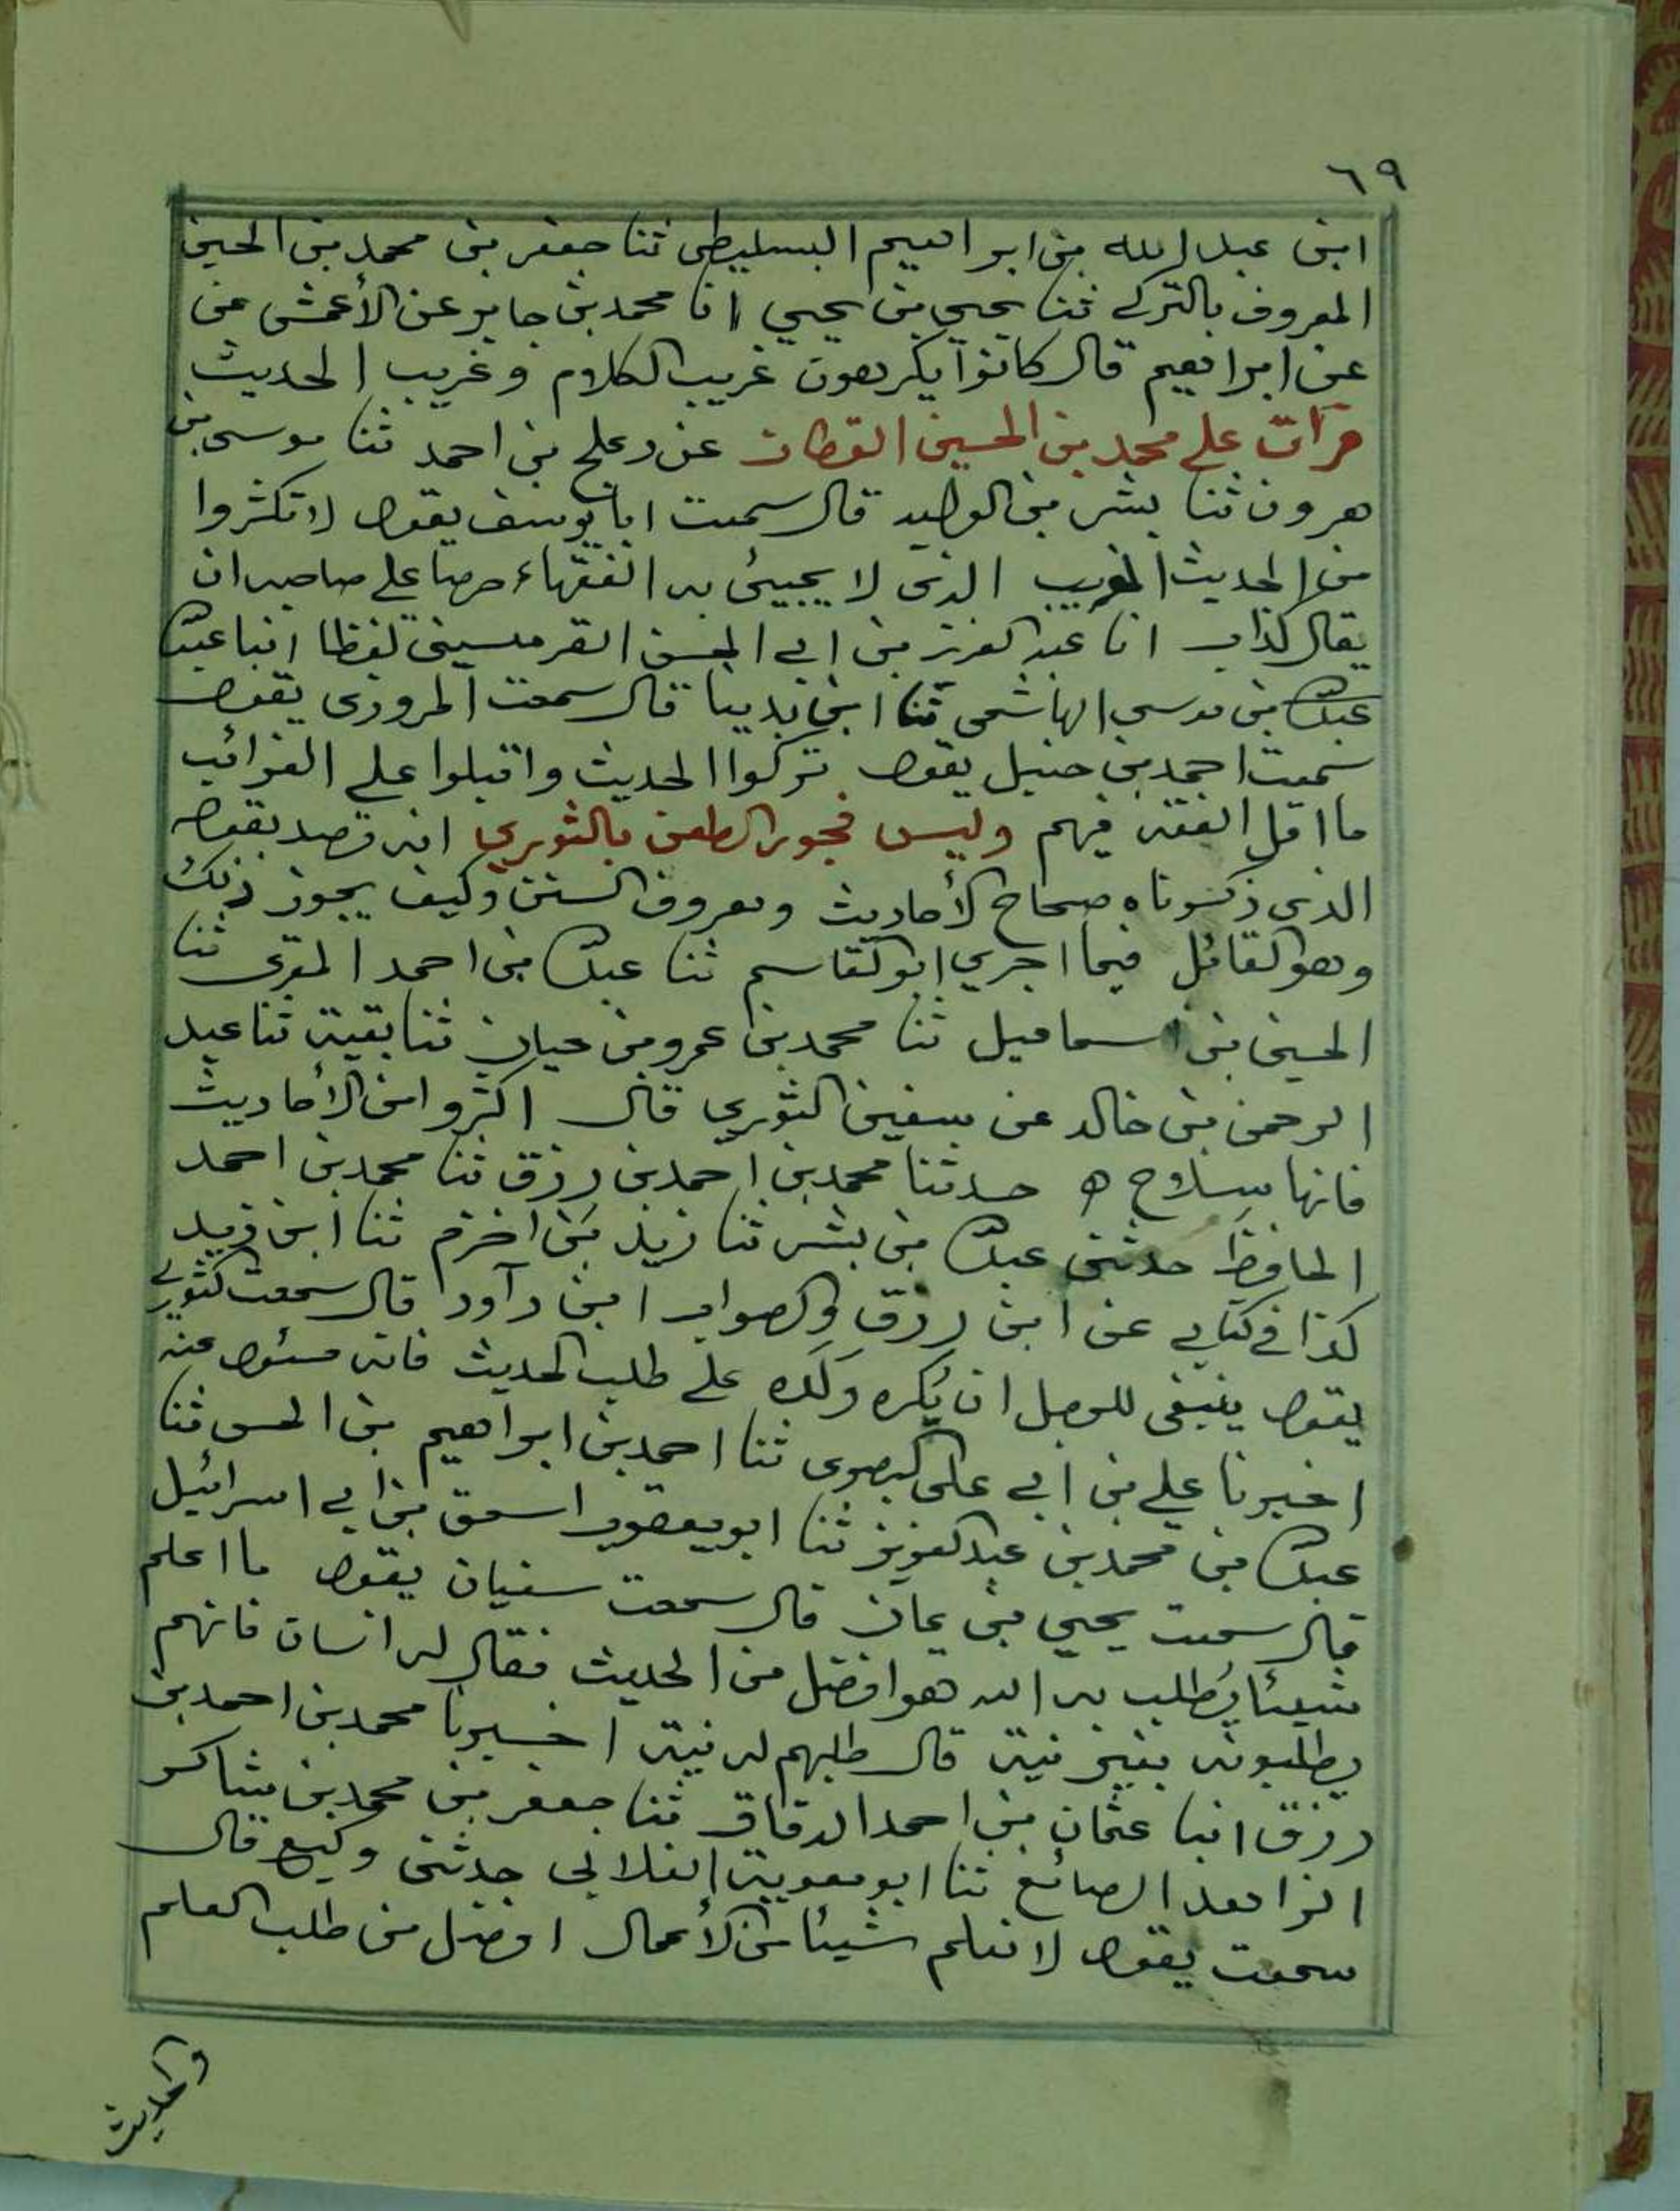 ٦٩
ابن عبد الله بن ابراهيم السليطى ثنا جعفر بن محمد بن الحسين
المعروف بالترك ثنا يحيى بن يحيي انا محمد بن جابر عن الأعمش عن
عن ابراهيم قال كانوا يكرهون غريب الكلام وغريب الحديث
قرأت علي محمد بن الحسين القطان عن دعلج بن احمد ثنا موسى بن
هرون ثنا بشر بن الوليد قال سمعت ابا يوسف يقول لا تكثروا
من الحديث الغريب الذى لا يجيئ به الفقهاء صاحبه ان
يقال كذاب انا عبد العزيز بن ابي الحسن القرمسينى لفظا انبا عبد الله
عبد الله بن موسي الهاشمى ثنا ابن بدينا قال سمعت المروزى يقول
سمعت احمد بن حنبل يقول تركوا الحديث واقبلوا على الغرائب
ما اقل الفقه فيهم وليس فجوز الطعن بالثوري انه قصد بقوله
الذى ذكرناه صحاح الأحاديث ومعروف السنن وكيف يجوز ذلك
وهو القائل فيما اجري ابو القاسم ثنا عبد الله بن احمد المقرى ثنا
الحسين بن اسماعيل ثنا محمد بن عمرو بن حيان ثنا بقية ثنا عبد
الرحمن بن خالد عن سفين الثوري قال اكثروا من الأحاديث
فانها سلاح ه حدثنا محمد بن احمد بن رزق ثنا محمد بن احمد
الحافظ حدثنى عبد الله بن بشر ثنا زيد بن اخزم ثنا ابن زيد
كذا في كتابي عن ابن رزق والصواب ابن دآود قال سمعت الثوري
يقول ينبغى للرجل ان يُكره ولَده على طلب الحديث فانه مسئول عنه
اخبرنا علي بن ابي على البصرى ثنا احمد بن ابراهيم بن الحسن ثنا
عبد الله بن محمد بن عبد العزيز ثنا ابو يعقوب اسحق بن ابي اسرائيل
قال سمعت يحيي بن يمان قال سمعت سفيان يقول ما اعلم
شيئا يُطلب به الله هو افضل من الحديث فقال له انسان فانهم
يطلبونه بغير نية قال طلبهم له نية اخبرنا محمد بن احمد بن
رزق انبا عثمان بن احمد الدقاق ثنا جعفر بن محمد بن شاكر
الزاهد الصائغ ثنا ابو معوية الغلابي حدثنى وكيع قال
سمعت يقول لا نعلم شيئا من الأعمال افضل من طلب العلم
والحديث